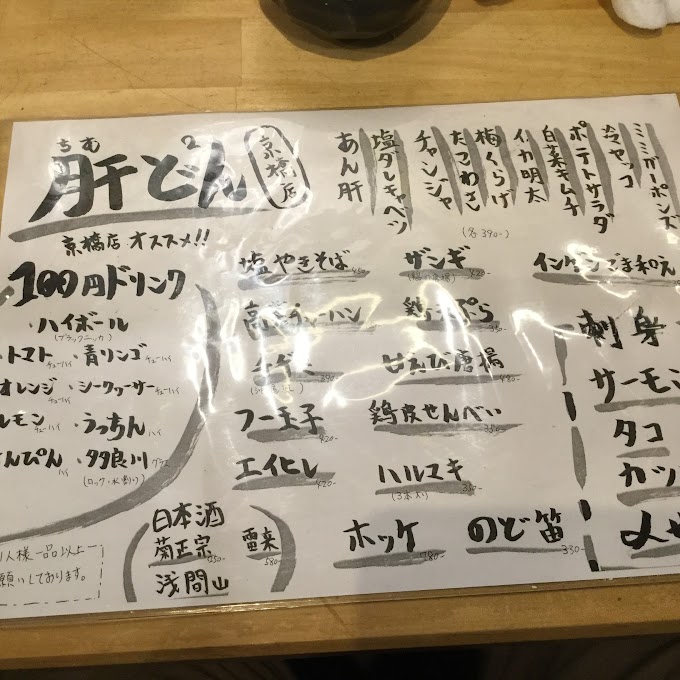 ちむ
肝どん
京橋店
京橋店オススメ!!
100円ドリンク
・ハイボール
(ブラックニッカ)
トマト チューハイ ・青リンゴ チューハイ
オレンジ チューハイ ・シークヮーサー チューハイ
レモン チューハイ ・うっちん ハイ
んぴん ハイ ・多良川 グラス
(ロック・水割り)
人様一品以上
願いしております。
日本酒
菊正宗
浅間山
雷来 580-
ミミガーポンズ
冷ヤッコ
ポテトサラダ
白菜キムチ
イカ明太
梅くらげ
たこわさ
チャンジャ
塩ダレキャベツ
あん肝
(各390-)
塩やきそば
ザンギ
インゲンごま和え
鶏天ぷら
甘えび唐揚
フー玉子 420-
鶏皮せんべい 380-
エイヒレ 420-
ハルマキ
(3本入り)
ホッケ 780-
のど笛 330-
刺身
サーモン
タコ
カツ